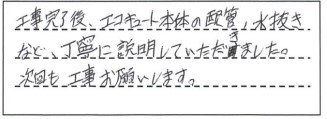 工事完了後、エコキュート本体の配管、水抜き
など、丁寧に説明していただきました。
次回も工事お願いします。